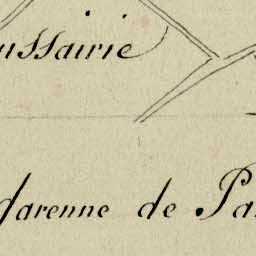 ussairie
Garenne de Pa